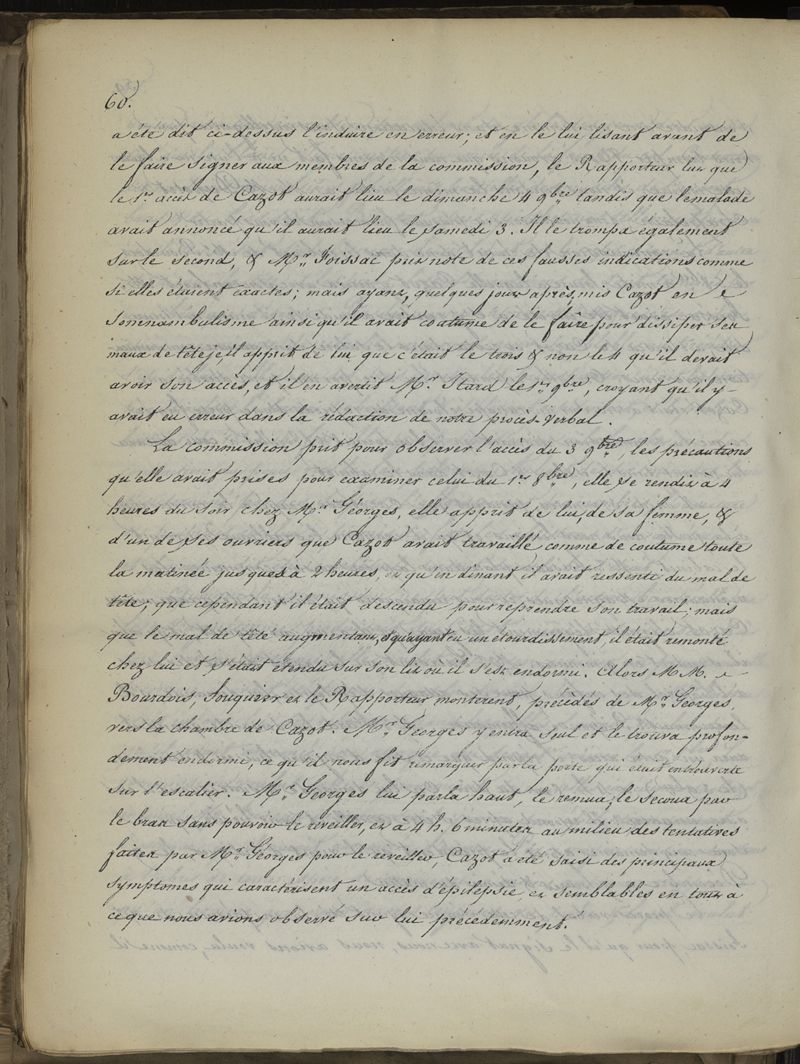 60.
a été dit ci-dessus l'induire en erreur; et en le lui lisant avant de
le faire signer aux membres de la commission, le Rapporteur lut que
le 1er accès de Cazot aurait lieu le dimanche 4 9bre tandis que le malade
avait annoncé qu'il aurait lieu le samedi 3. Il le trompa également
sur le second, & Mr. Foissac prit note de ces fausses indications comme
si elles étaient exactes; mais ayant, quelques jours après, mis Cazot en
somnambulisme ainsi qu'il avait coutume de le faire pour dissiper ses
maux de tête, il apprit de lui que c'était le trois & non le 4 qu'il devait
avoir son accès, et il en avertit Mr. Itard le 1er 9bre, croyant qu'il y-
avait eu erreur dans la rédaction de notre procès-Verbal.
La commission prit pour observer l'accès du 3 9bre, les précautions
qu'elle avait prises pour examiner celui du 1er 8bre, elle se rendit à 4
heures du soir chez Mr. Géorges, elle apprit de lui, de sa femme, &
d'un de ses ouvriers que Cazot avait travaillé comme de coutume toute
la matinée jusques à 2 heures, et qu'en dinant il avait ressenti du mal de
tête; que cependant il était descendu pour reprendre son travail; mais
que le mal de tête augmentant, & qu'ayant eu un étourdissement il était remonté
chez lui et s'était étendu sur son lit où il s'est endormi. Alors M M.
Bourdois, Fouquier et le Rapporteur monterent, précédés de Mr. Georges,
vers la chambre de Cazot. Mr. Georges y entra seul et le trouva profon-
dement endormi, ce qu'il nous fit remarquer par la porte qui était entr'ouverte
sur l'escalier. Mr. Georges lui parla haut, le remua, le secoua par
le bras sans pouvoir le reveiller, et à 4 h. 6 minutes au milieu des tentatives
faites par Mr. Géorges pour le reveiller, Cazot a été saisi des principaux
symptomes qui caractérisent un accès d'épilepsie et semblables en tout à
ce que nous avions observé sur lui précédemment.